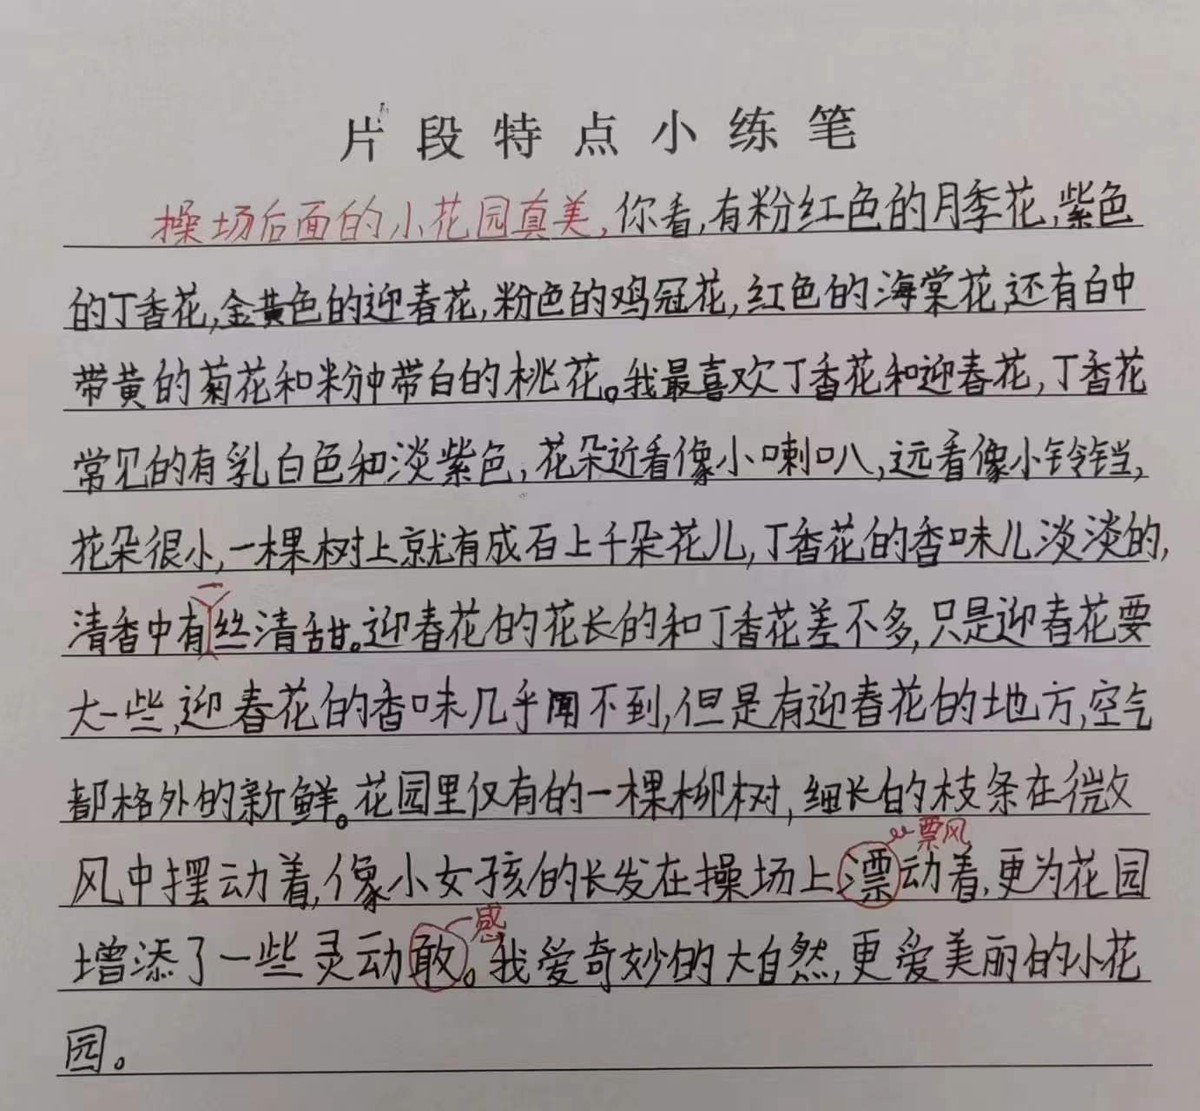 片段特点小练笔
操场后面的小花园真美,你看,有粉红色的月季花,紫色
的丁香花,金黄色的迎春花,粉色的鸡冠花,红色的海棠花,还有白中
带黄的菊花和粉中带白的桃花。我最喜欢丁香花和迎春花,丁香花
常见的有乳白色和淡紫色,花朵近看像小喇叭,远看像小铃铛,
花朵很小,一棵树上就有成石上千朵花儿,丁香花的香味儿淡淡的,
一
清香中有丝清甜。迎春花的花长的和丁香花差不多,只是迎春花要
大一些,迎春花的香味几乎闻不到,但是有迎春花的地方,空气
都格外的新鲜。花园里仅有的一棵柳树,细长的枝条在微
飘
风中摆动着,像小女孩的长发在操场上漂动着,更为花园
感
增添了一些灵动敢。我爱奇妙的大自然,更爱美丽的小花
园。